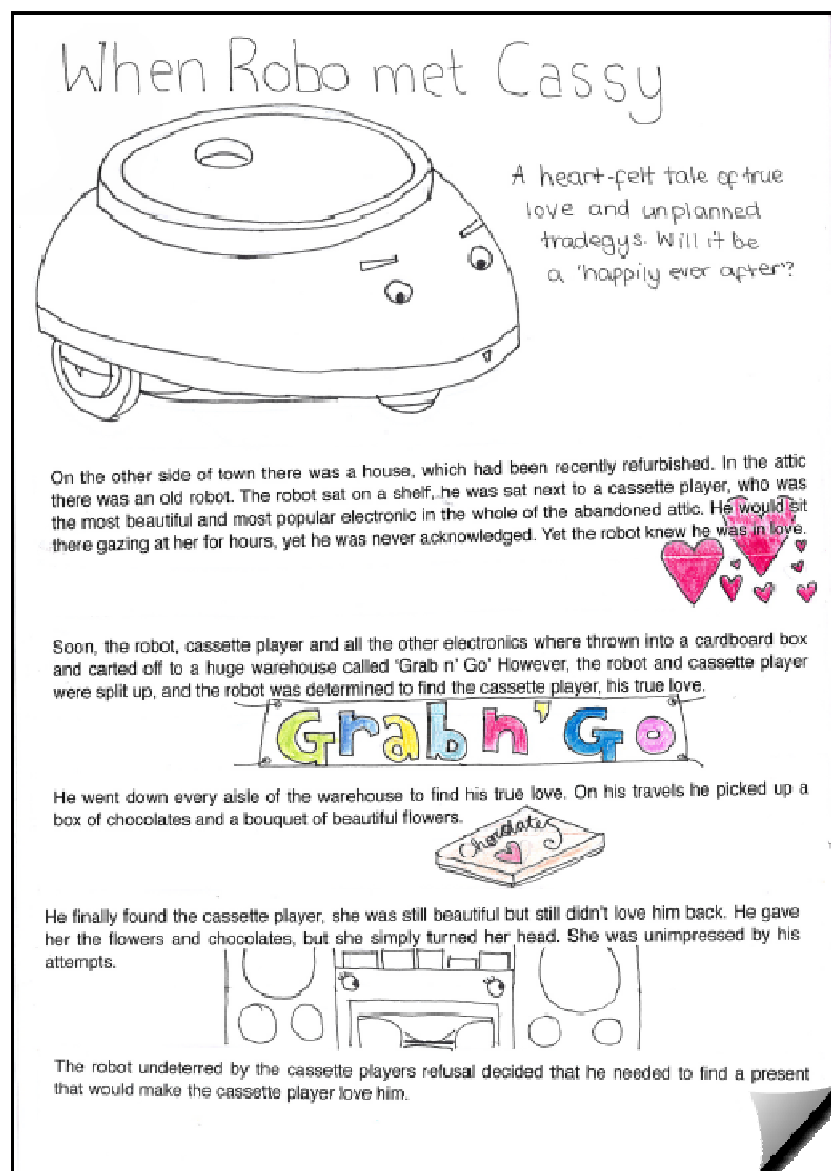 When Robo met Cassy
A heart-felt tale of true
love and unplanned
tradegys. Will it be
a 'happily ever after'?
On the other side of town there was a house, which had been recently refurbished. In the attic
there was an old robot. The robot sat on a shelf, he was sat next to a cassette player, who was
the most beautiful and most popular electronic in the whole of the abandoned attic. He would sit
there gazing at her for hours, yet he was never acknowledged. Yet the robot knew he was in love.
Soon, the robot, cassette player and all the other electronics where thrown into a cardboard box
and carted off to a huge warehouse called 'Grab n' Go' However, the robot and cassette player
were split up, and the robot was determined to find the cassette player, his true love.
Grab n' Go
He went down every aisle of the warehouse to find his true love. On his travels he picked up a
box of chocolates and a bouquet of beautiful flowers.
Chocolates
He finally found the cassette player, she was still beautiful but still didn't love him back. He gave
her the flowers and chocolates, but she simply turned her head. She was unimpressed by his
attempts.
The robot undeterred by the cassette players refusal decided that he needed to find a present
that would make the cassette player love him.